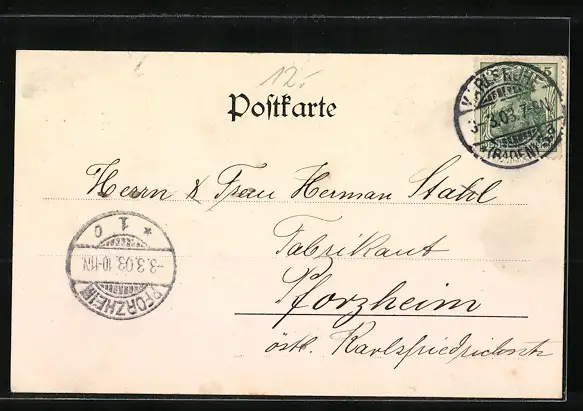 12.-
Postkarte
5
KARLSRUHE
3.3.03.7-8N.
(BADEN)
Herrn & Frau Herman Stahl
Fabrikant
Pforzheim
östl. Karlsfriedrichstr
* 1 c
-3.3.03.10-11N.
PFORZHEIM